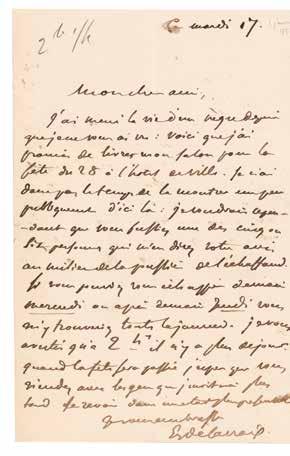 2 h 1/2
Ce mardi 17.
Mon cher ami,
J'ai mené la vie d'un nègre depuis
que je ne vous ai vu : voici que j'ai
promis de livrer mon salon pour la
fête du 28 à l'hôtel de Ville. Je n'ai
donc pas le temps de le montrer un peu
publiquement d'ici là : je voudrais cepen-
dant que vous fussiez un des cinq ou
six personnes qui m'en direz votre avis
au milieu de la poussière de l'échaffaud.
Si vous pouvez vous échapper demain
mercredi ou après demain Jeudi vous
m'y trouverez toute la journée. Je vous
avertis qu'à 2 h il n'y a plus de jour.
quand la fête sera passée, j'espère que vous
viendrez avec les gens que j'inviterai plus
tard le revoir dans un état plus présentable
Je vous embrasse
EDelacroix